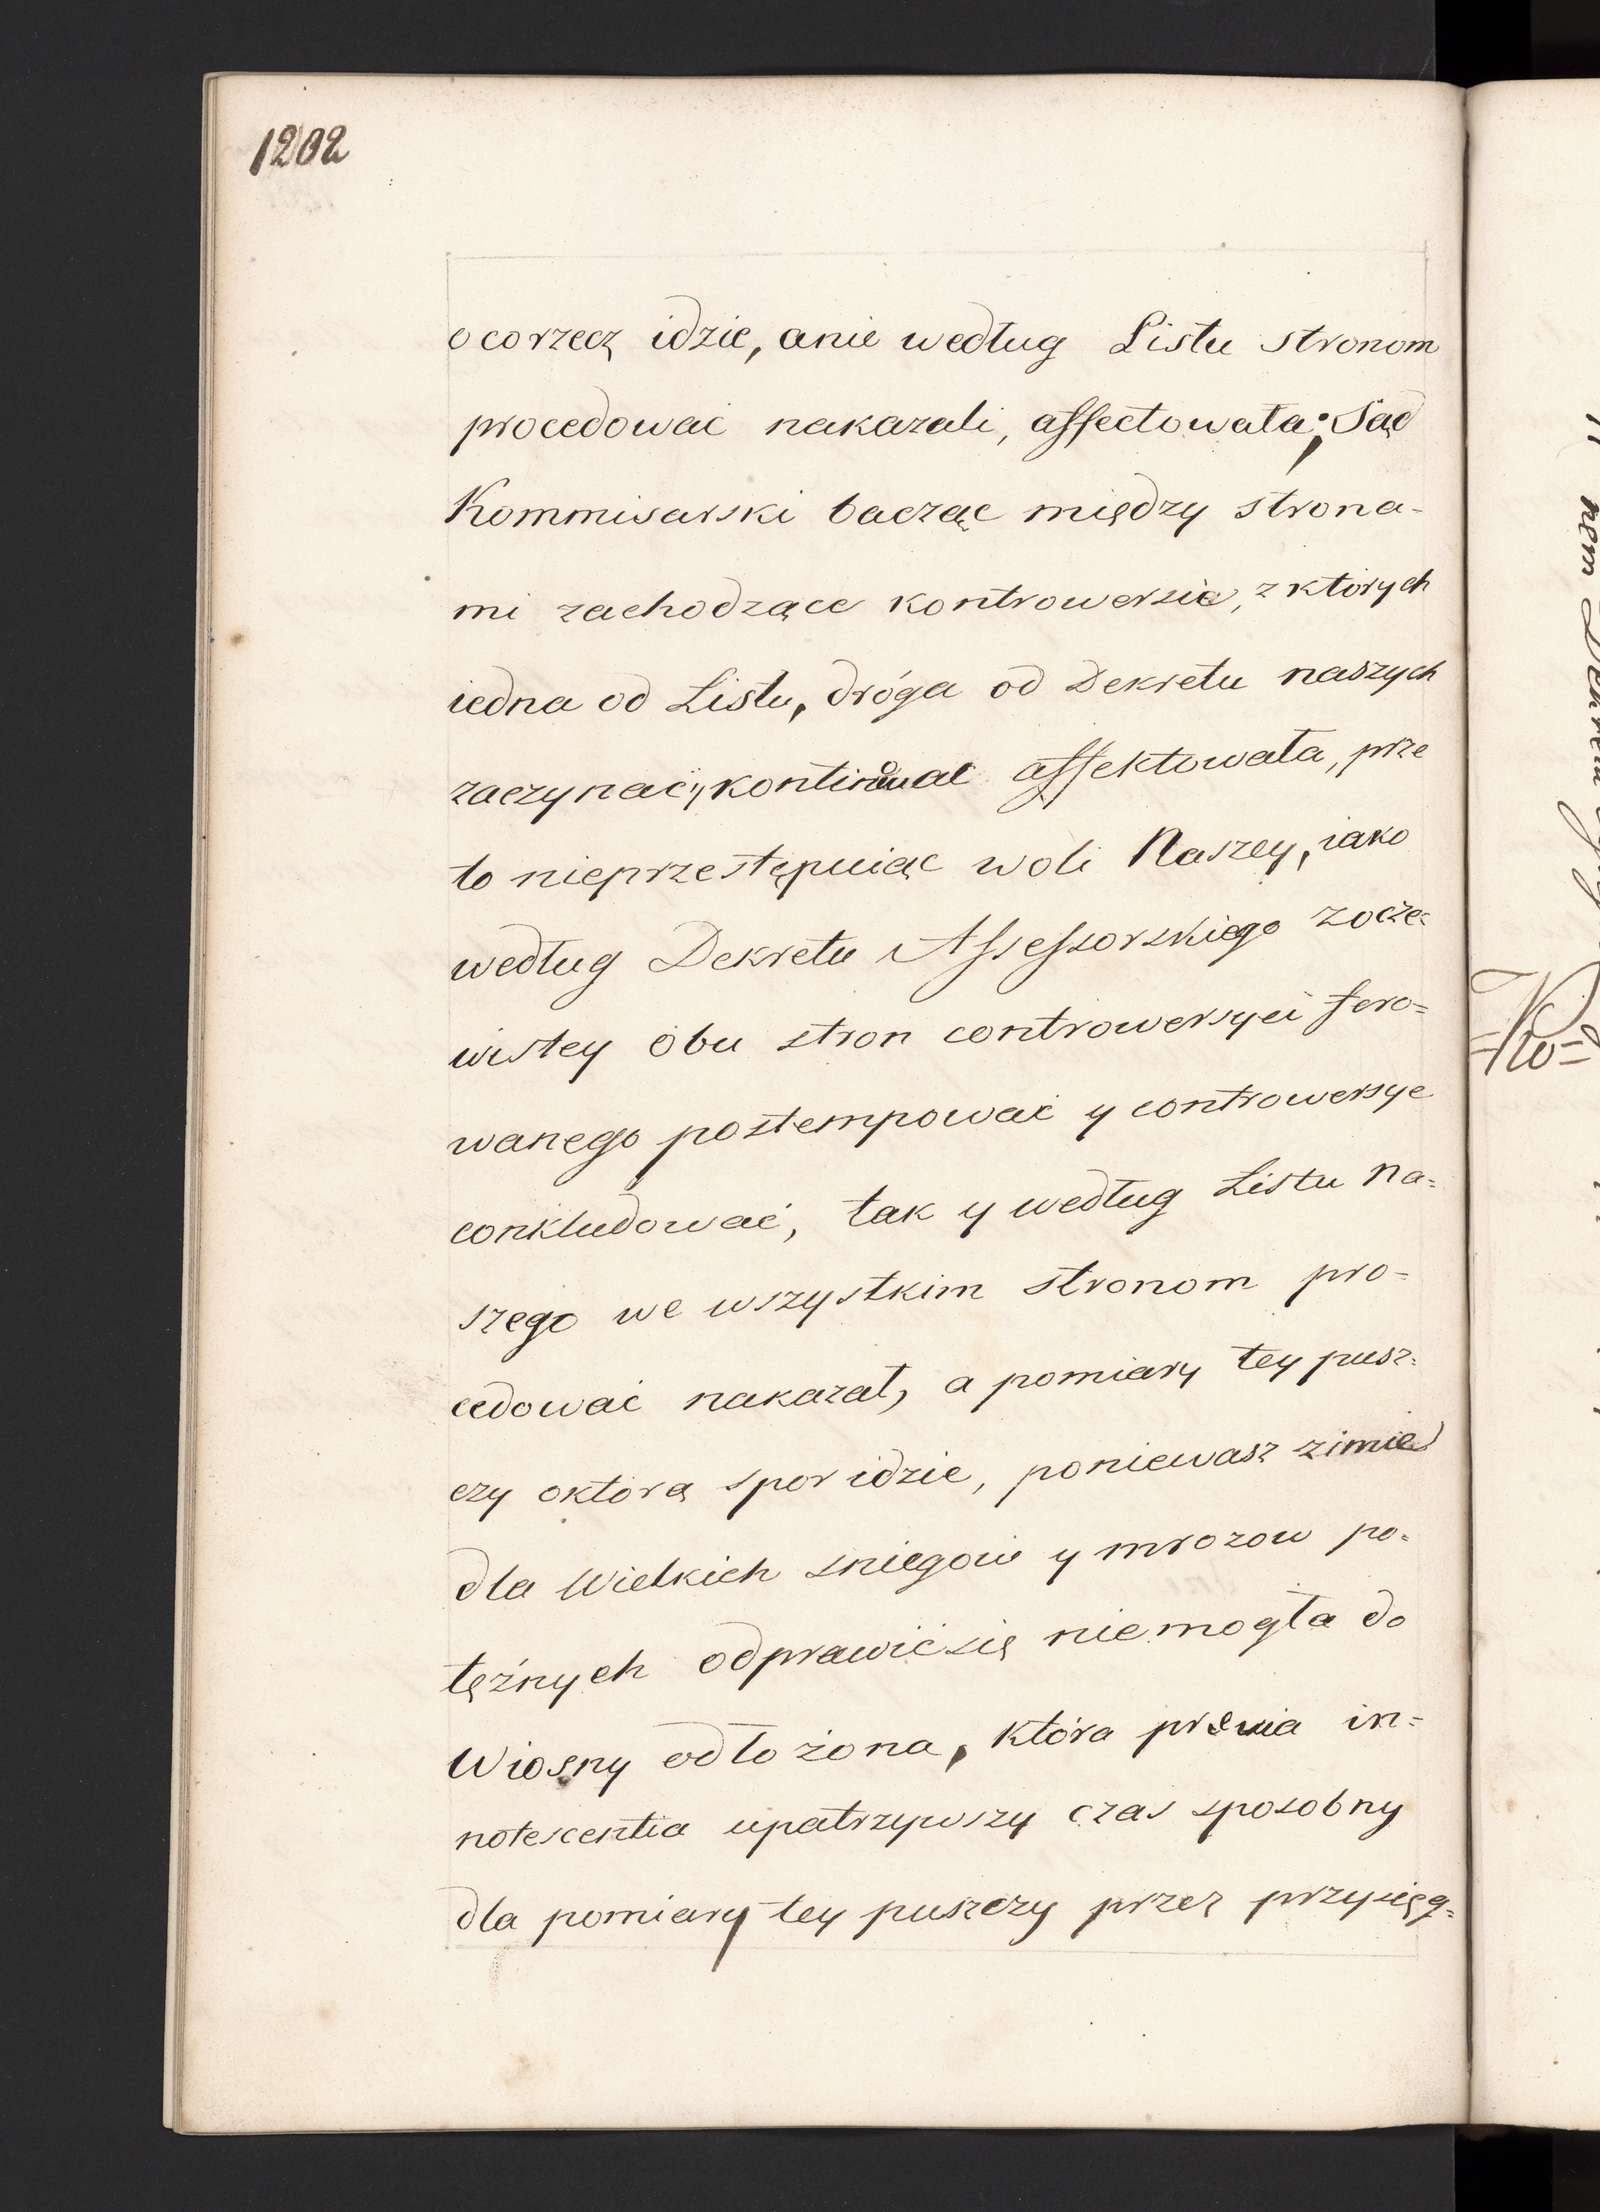 1202
o co rzecz idzie, a nie według Listu stronom
procedować nakazali, affectowała; Sąd
Kommisarski bacząc między strona-
mi zachodzące kontrowersie, z których
iedna od Listu, dróga od Dekretu naszych
zaczynać y kontinować affektowała, prze
to nieprzestępuiąc woli Naszey, iako
według Dekretu Assessorskiego z ocze-
wistey obu stron controwersyei fero=
wanego postempować y controwersye
conkludować, tak y według Listu Na=
szego we wszystkim stronom pro=
cedować nakazał, a pomiary tey pusz=
czy o którą spor idzie, poniewasz zimie
dla Wielkich sniegow y mrozow po=
tężnych odprawić się niemogła do
Wiosny odłożona, która prævia in=
notescentia upatrzywszy czas sposobny
dla pomiary tey puszczy przez przysięg=
nem Dekretu
=Ko=